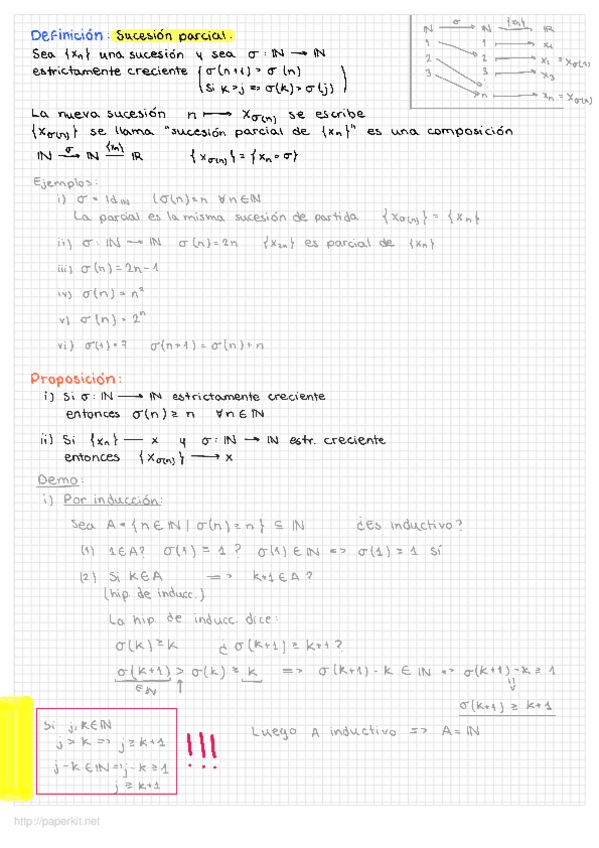 Definición: Sucesión parcial.
Sea {xn} una sucesión y sea σ: ℕ → ℕ
estrictamente creciente (σ(n+1) > σ(n)
(Si k>j => σ(k) > σ(j))
ℕ σ→ ℕ {xn}→ ℝ
1 1 → x1
2 2 → x2 = xσ(1)
3 3 → x3
n → xn = xσ(n)
La nueva sucesión n ↦ xσ(n) se escribe
{xσ(n)} se llama "sucesión parcial de {xn}" es una composición
ℕ σ→ ℕ {xn}→ ℝ {xσ(n)} = {xn∘σ}
Ejemplos:
i) σ = Id ℕ (σ(n)=n ∀n∈ℕ
La parcial es la misma sucesión de partida {xσ(n)} = {xn}
ii) σ: ℕ → ℕ σ(n)=2n {x2n} es parcial de {xn}
iii) σ(n)=2n-1
iv) σ(n)=n²
v) σ(n)=2ⁿ
vi) σ(1)=7 σ(n+1)=σ(n)+n
Proposición:
i) Si σ: ℕ → ℕ estrictamente creciente
entonces σ(n) ≥ n ∀n∈ℕ
ii) Si {xn} — x y σ: ℕ → ℕ estr. creciente
entonces {xσ(n)} → x
Demo:
i) Por inducción:
Sea A={n∈ℕ | σ(n)≥n} ⊆ ℕ ¿Es inductivo?
(1) 1∈A? σ(1) ≥ 1 ? σ(1)∈ℕ => σ(1)≥1 Sí
(2) Si k∈A => k+1∈A?
(hip. de inducc.)
La hip. de inducc. dice:
σ(k)≥k ¿σ(k+1)≥k+1?
σ(k+1) > σ(k) ≥ k => σ(k+1)-k ∈ ℕ => σ(k+1)-k≥1
∈ℕ ↑ ⇓
σ(k+1) ≥ k+1
Si j,k∈ℕ
j>k => j≥k+1
j-k∈ℕ => j-k≥1
j≥k+1
!!!
Luego A inductivo => A=ℕ
http://paperkit.net